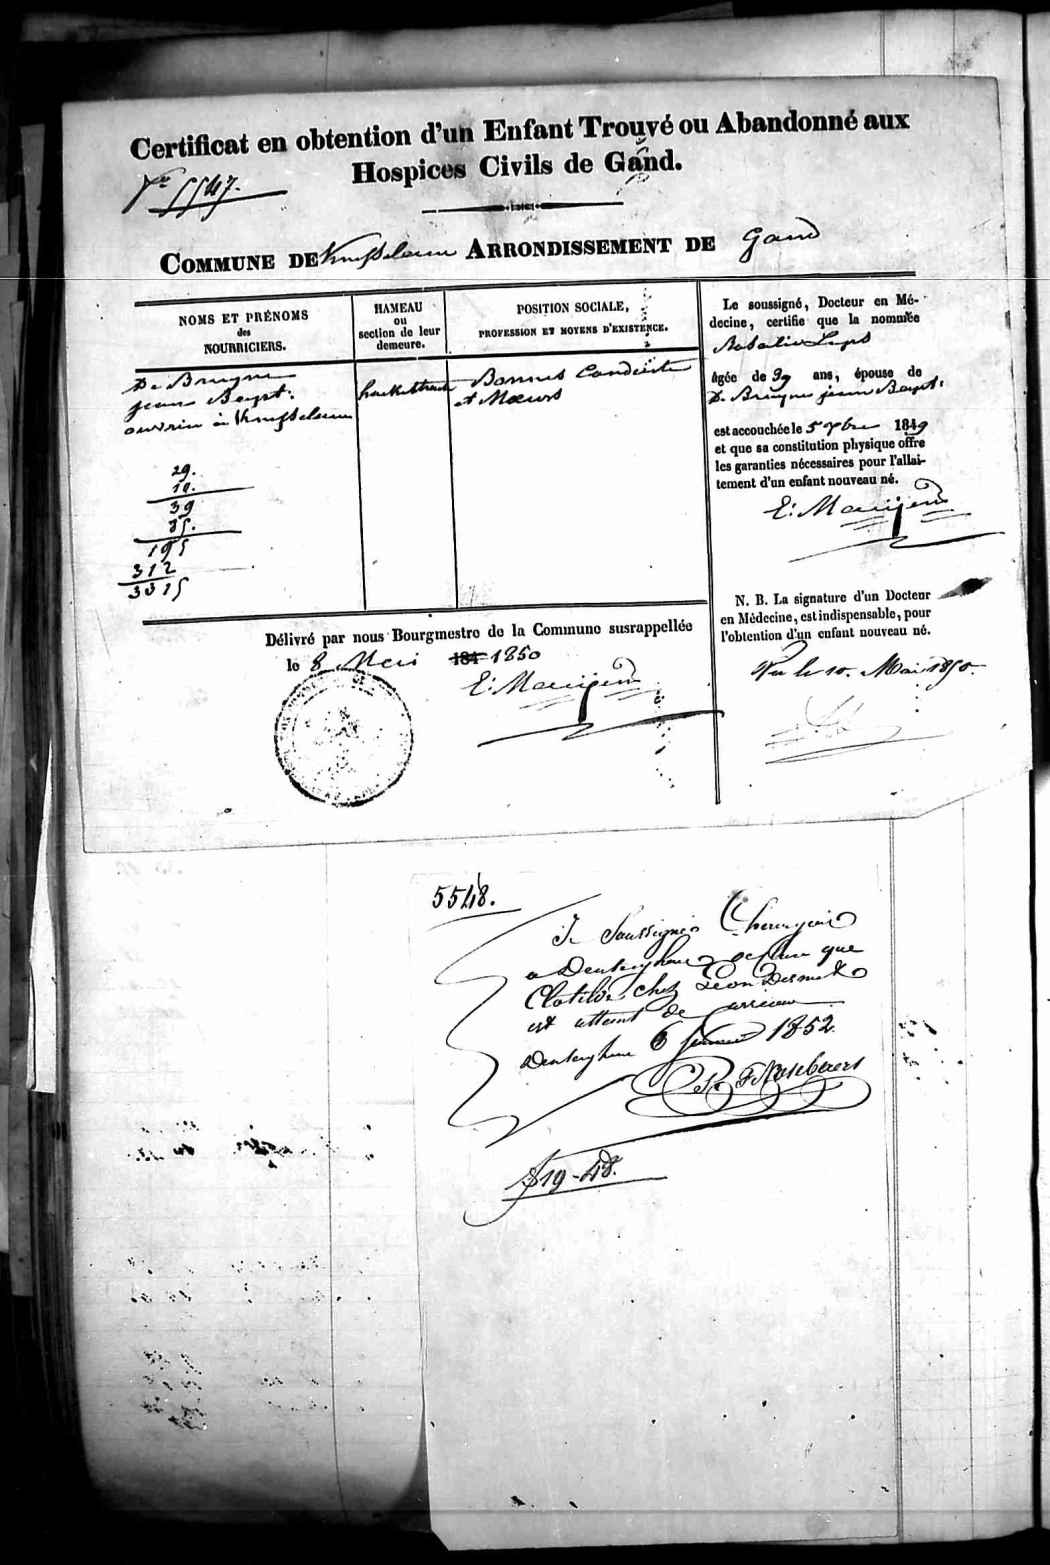 Certificat en obtention d'un Enfant Trouvé ou Abandonné aux
Hospices Civils de Gand.
5547.
COMMUNE DE ARRONDISSEMENT DE Gand
NOMS ET PRÉNOMS
des
NOURRICIERS.
De Bruyne
jean Bapt.
ouvrier à
29.
10.
39
85.
195
312
3315
HAMEAU
ou
section de leur
demeure.
POSITION SOCIALE,
PROFESSION ET MOYENS D'EXISTENCE.
Bonnes Conduite
et Mœurs
Le soussigné, Docteur en Mé-
decine, certifie que la nommée
Rosalie
âgée de 39 ans, épouse de
De Bruyne jean Bapt.
est accouchée le 5 7bre 1849
et que sa constitution physique offre
les garanties nécessaires pour l'allai-
tement d'un enfant nouveau né.
N. B. La signature d'un Docteur
en Médecine, est indispensable, pour
l'obtention d'un enfant nouveau né.
Vu le 10. Mai 1850.
Délivré par nous Bourgmestre de la Commune susrappellée
le 8 Mei 184 1850
5548.
Je Soussigné Chirurgien
a Denterghem declare que
Clotilde chez Léon Desmet
est atteint de
Denterghem 6 1852.
519-48.